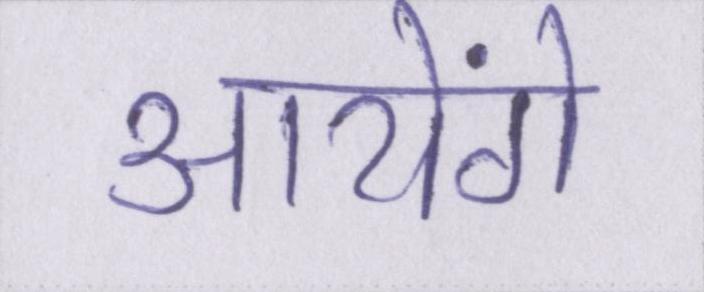 आयेंगे